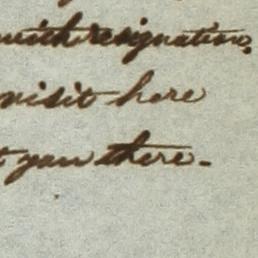 with resignation.
visit here
you there.